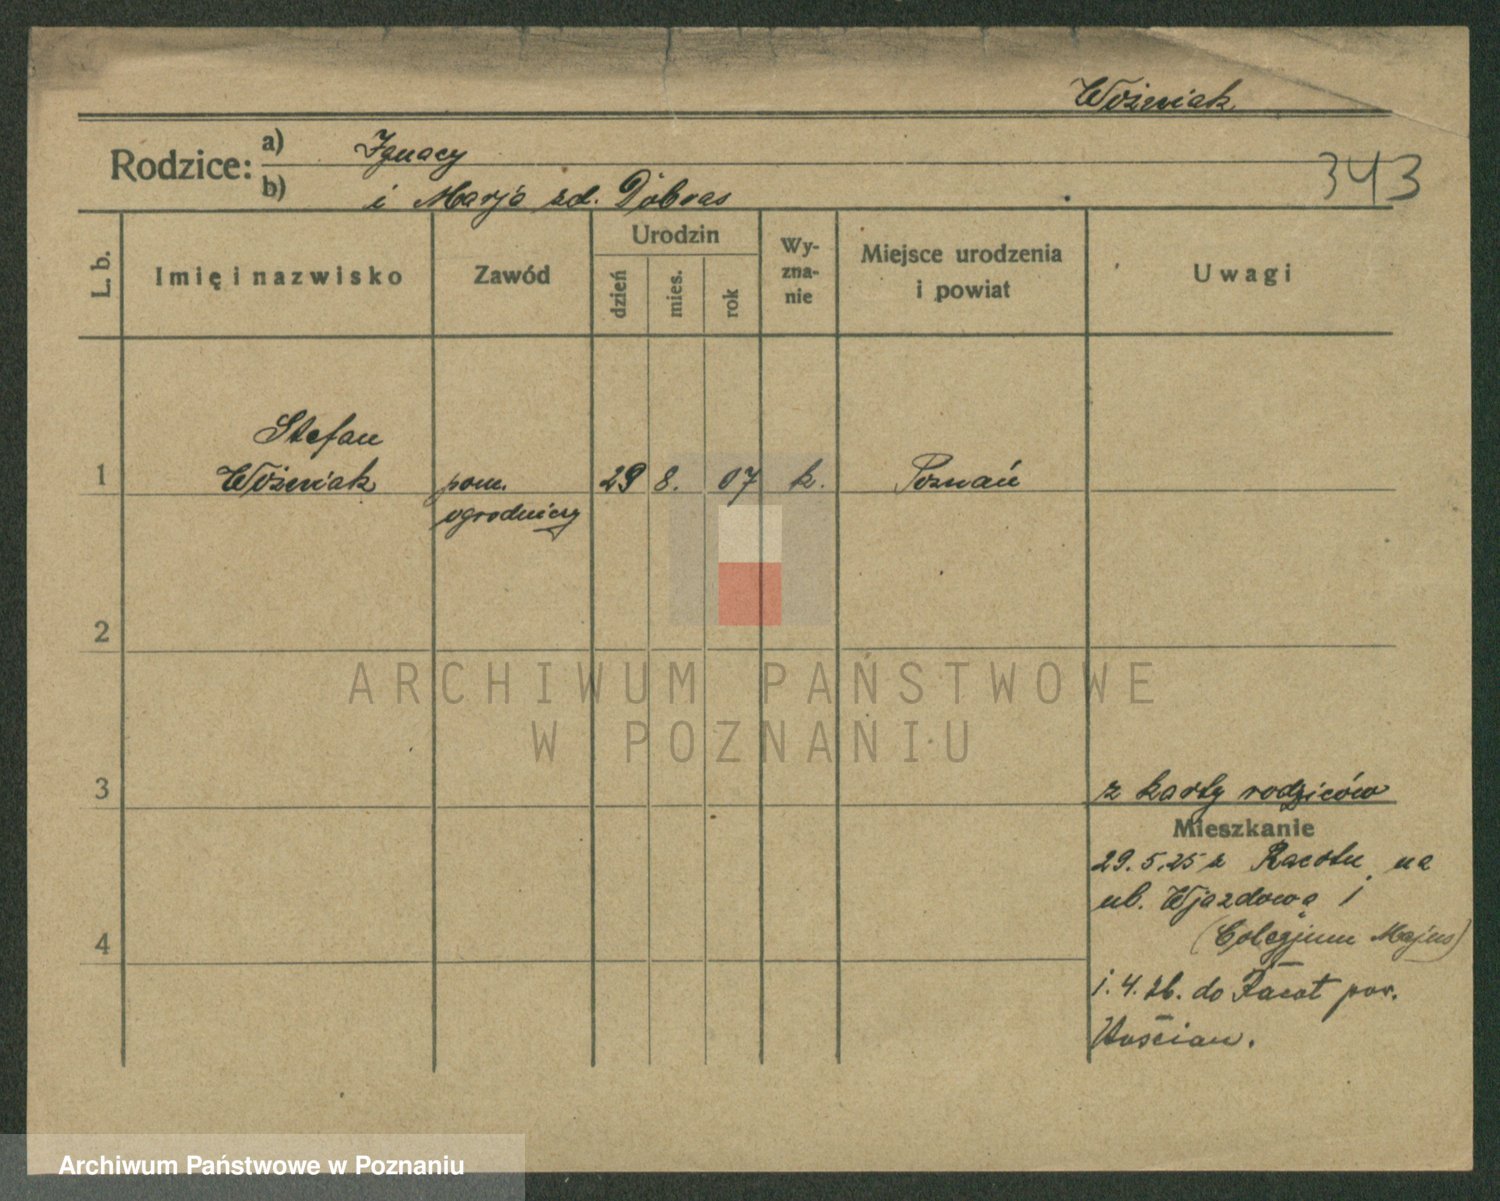 Woźniak
Rodzice: a) Ignacy
b) i Marja zd. Dobras
343
L. b.
Imię i nazwisko
Zawód
Urodzin
dzień
mies.
rok
Wy-
zna-
nie
Miejsce urodzenia
i powiat
Uwagi
Stefan
1 Woźniak pom. 29 8. 07 k. Poznań
ogrodniczy
2
ARCHIWUM PAŃSTWOWE
W POZNANIU
3
z karty rodziców
Mieszkanie
29.5.25 z Racotu na
ul. Wjazdowa 1
(Colegjum Majus)
4
1.4.26. do Racot pow.
Kościan.
Archiwum Państwowe w Poznaniu